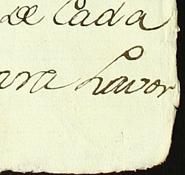 De Cada
ara Lavor